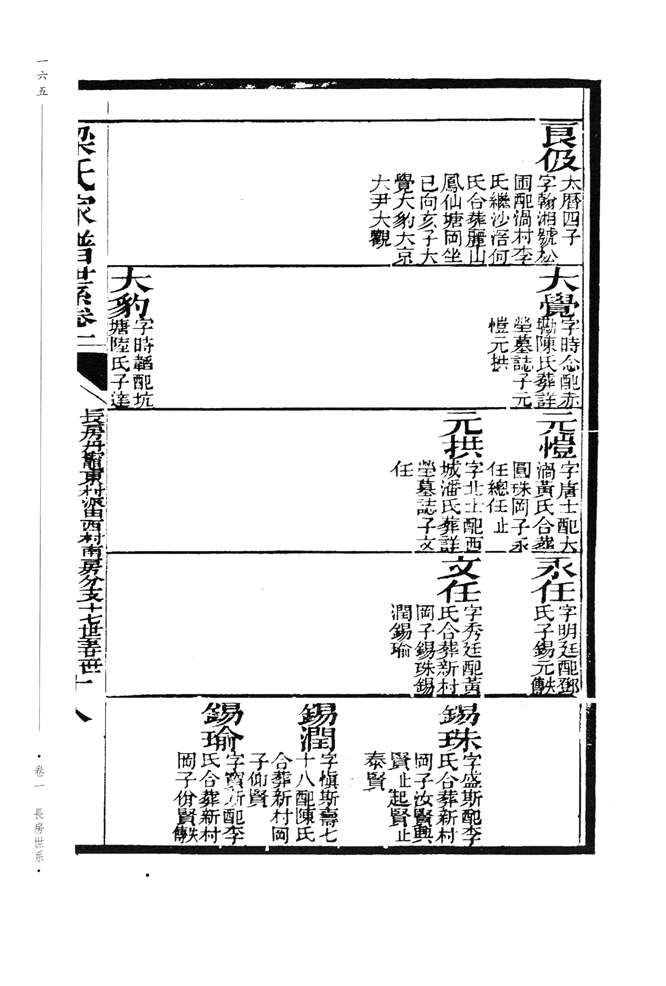 良伋
太曆四子
字翰湘號松
圃配渦村李
氏繼沙浯何
氏合葬麗山
鳳仙塘岡坐
巳向亥子大
覺大豹大京
大尹大觀
大覺
字時念配赤
墈陳氏葬詳
塋墓誌子元
愷元拱
大豹
字時韜配坑
塘陸氏子達
元愷
字唐士配大
渦黃氏合葬
圓珠岡子永
任總任止
元拱
字北士配西
城潘氏葬詳
塋墓誌子文
任
永任
字明廷配鄧
氏子錫元傳軼
文任
字秀廷配黃
氏合葬新村
岡子錫珠錫
潤錫瑜
錫珠
字盛斯配李
氏合葬新村
岡子汝賢興
賢止起賢止
泰賢
錫潤
字慎斯壽七
十八配陳氏
合葬新村岡
子仰賢
錫瑜
字寶斯配李
氏合葬新村
岡子份賢傳軼
梁氏家譜世系卷一
長房丹竈東村派由西村南房分支十七世至廿世
十八
一六五
·卷一 長房世系·